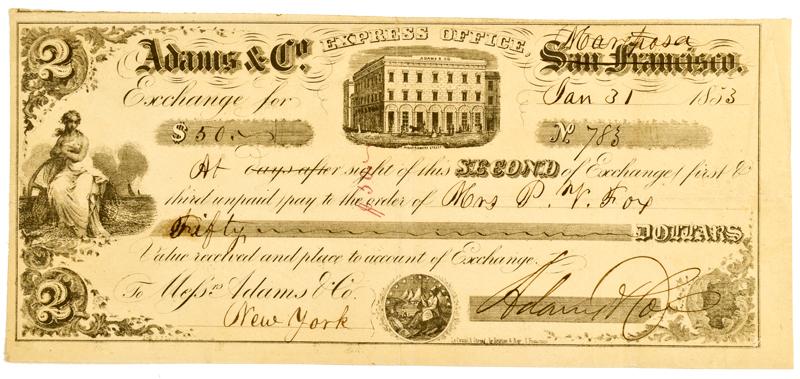 2
Adams & Co. EXPRESS OFFICE, Mariposa
San Francisco.
ADAMS & CO.
Exchange for Jan 31 1853
$ 50. No 783
At days after sight of this SECOND of Exchange, first &
third unpaid pay to the order of Mrs P. V. Fox
Fifty DOLLARS
Value received and place to account of Exchange.
2
To Messrs Adams & Co. Adams & Co
New York